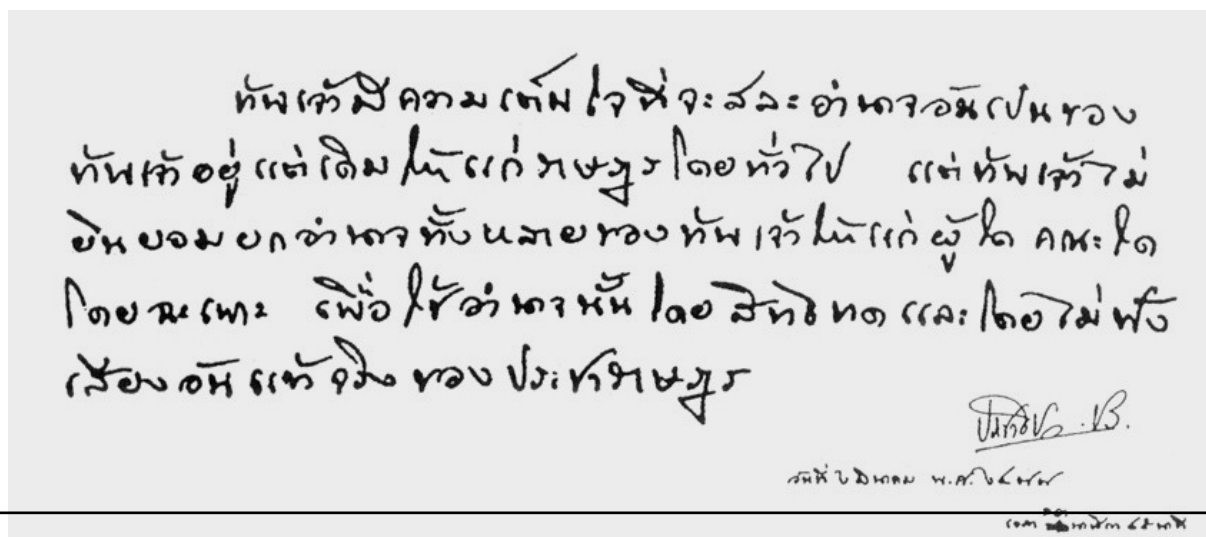 ข้าพเจ้ามีความเต็มใจที่จะสละอำนาจอันเป็นของ
ข้าพเจ้าอยู่แต่เดิมให้แก่ราษฎรโดยทั่วไป แต่ข้าพเจ้าไม่
ยินยอมยกอำนาจทั้งหลายของข้าพเจ้าให้แก่ผู้ใด คณะใด
โดยฉะเพาะ เพื่อใช้อำนาจนั้นโดยสิทธิขาดและโดยไม่ฟัง
เสียงอันแท้จริงของประชาราษฎร
ประชาธิปก ปร.
วันที่ ๒ มีนาคม พ.ศ. ๒๔๗๗
เวลา นาฬิกา ๔๕ นาที